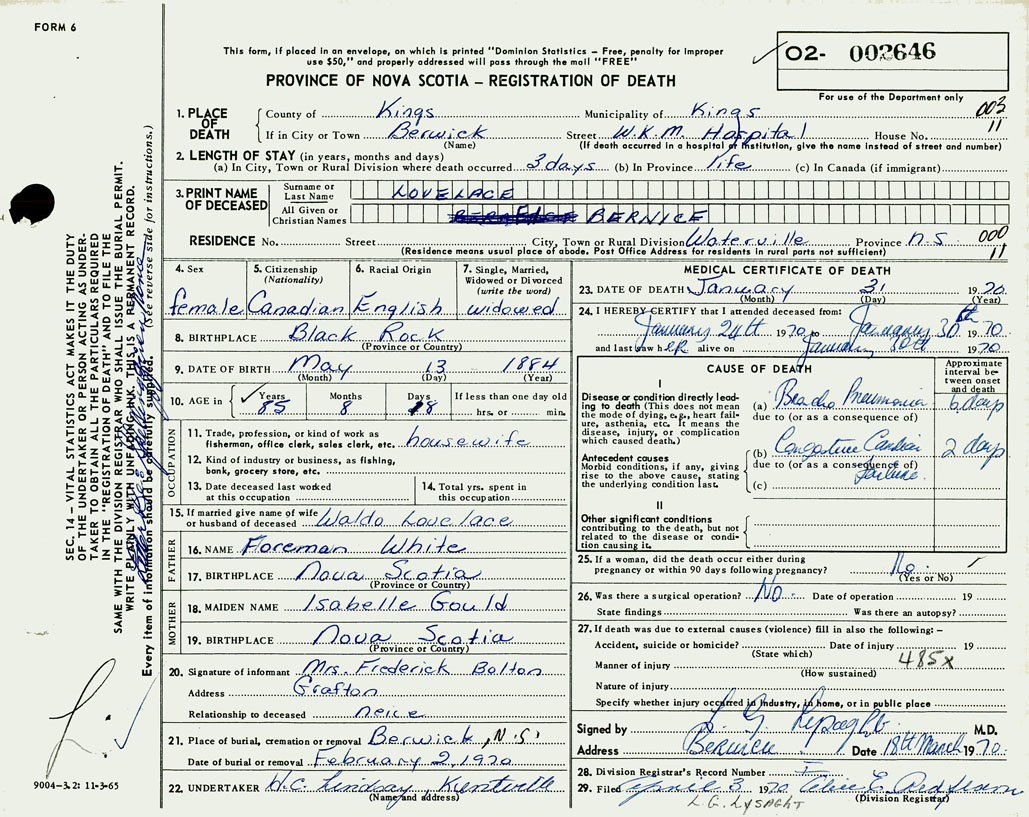 FORM 6
This form, if placed in an envelope, on which is printed "Dominion Statistics – Free, penalty for improper
use $50," and properly addressed will pass through the mail "FREE"
O2- 002646
PROVINCE OF NOVA SCOTIA – REGISTRATION OF DEATH
For use of the Department only
1. PLACE OF DEATH
County of Kings Municipality of Kings 003
If in City or Town Berwick Street W.K.M. Hospital House No. 11
(Name) (If death occurred in a hospital or institution, give the name instead of street and number)
2. LENGTH OF STAY (in years, months and days)
(a) In City, Town or Rural Division where death occurred 3 days (b) In Province life (c) In Canada (if immigrant)
3. PRINT NAME OF DECEASED
Surname or Last Name LOVELACE
All Given or Christian Names BERNICE
RESIDENCE No. Street City, Town or Rural Division Waterville Province N.S. 000
(Residence means usual place of abode. Post Office Address for residents in rural parts not sufficient) 11
4. Sex female
5. Citizenship (Nationality) Canadian
6. Racial Origin English
7. Single, Married, Widowed or Divorced (write the word) widowed
8. BIRTHPLACE Black Rock
(Province or Country)
9. DATE OF BIRTH May 13 1884
(Month) (Day) (Year)
10. AGE in Years 85 Months 8 Days 18 If less than one day old hrs. or min.
OCCUPATION
11. Trade, profession, or kind of work as
fisherman, office clerk, sales clerk, etc. housewife
12. Kind of industry or business, as fishing,
bank, grocery store, etc.
13. Date deceased last worked
at this occupation
14. Total yrs. spent in
this occupation
15. If married give name of wife
or husband of deceased Waldo Lovelace
FATHER
16. NAME Foreman White
17. BIRTHPLACE Nova Scotia
(Province or Country)
MOTHER
18. MAIDEN NAME Isabelle Gould
19. BIRTHPLACE Nova Scotia
(Province or Country)
20. Signature of informant Mrs. Frederick Bolton
Address Grafton
Relationship to deceased neice
21. Place of burial, cremation or removal Berwick, N.S.
Date of burial or removal February 2, 1970
22. UNDERTAKER H.C. Lindsay, Kentville
(Name and address)
MEDICAL CERTIFICATE OF DEATH
23. DATE OF DEATH January 31 1970
(Month) (Day) (Year)
24. I HEREBY CERTIFY that I attended deceased from:
January 24th 1970 to January 30th 1970
and last saw her alive on January 30th 1970
CAUSE OF DEATH
Approximate interval between onset and death
I
Disease or condition directly leading
to death (This does not mean
the mode of dying, e.g., heart failure,
asthenia, etc. It means the
disease, injury, or complication
which caused death.)
(a) Broncho Pneumonia 6 days
due to (or as a consequence of)
Antecedent causes
Morbid conditions, if any, giving
rise to the above cause, stating
the underlying condition last.
(b) Congestive Cardiac 2 days
due to (or as a consequence of)
Failure
(c)
II
Other significant conditions
contributing to the death, but not
related to the disease or condition
causing it.
25. If a woman, did the death occur either during
pregnancy or within 90 days following pregnancy? No
(Yes or No)
26. Was there a surgical operation? No Date of operation 19
State findings Was there an autopsy?
27. If death was due to external causes (violence) fill in also the following: –
Accident, suicide or homicide? Date of injury 19
(State which)
485x
Manner of injury
(How sustained)
Nature of injury
Specify whether injury occurred in industry, in home, or in public place
Signed by L. G. Lysaght M.D.
Address Berwick Date 18th March 1970
28. Division Registrar's Record Number
29. Filed April 3 1970 Alice E.
(Division Registrar)
L.G. LYSAGHT
SEC. 14 – VITAL STATISTICS ACT MAKES IT THE DUTY
OF THE UNDERTAKER OR PERSON ACTING AS UNDERTAKER
TO OBTAIN ALL THE PARTICULARS REQUIRED
IN THE "REGISTRATION OF DEATH" AND TO FILE THE
SAME WITH THE DIVISION REGISTRAR WHO SHALL ISSUE THE BURIAL PERMIT.
WRITE PLAINLY WITH UNFADING INK. THIS IS A PERMANENT RECORD.
Every item of information should be carefully supplied. (See reverse side for instructions.)
9004-3.2: 11-3-65